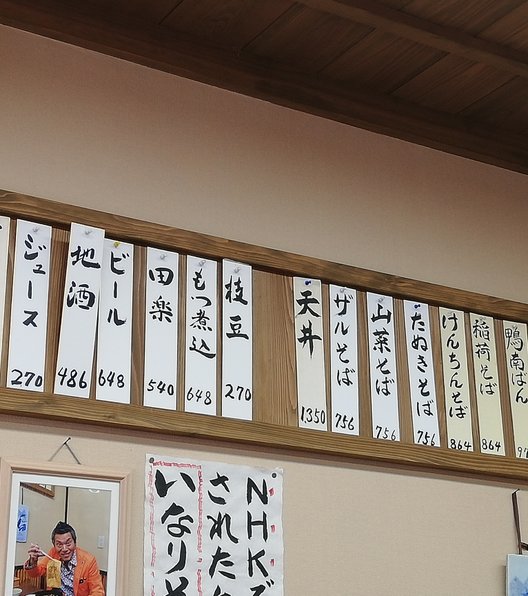 鴨南ばん
稲荷そば
864
けんちんそば
864
たぬきそば
756
山菜そば
756
ザルそば
756
天丼
1,350
枝豆
270
もつ煮込
648
田楽
540
ビール
648
地酒
486
ジュース
270
NHKで
された
いなりそ